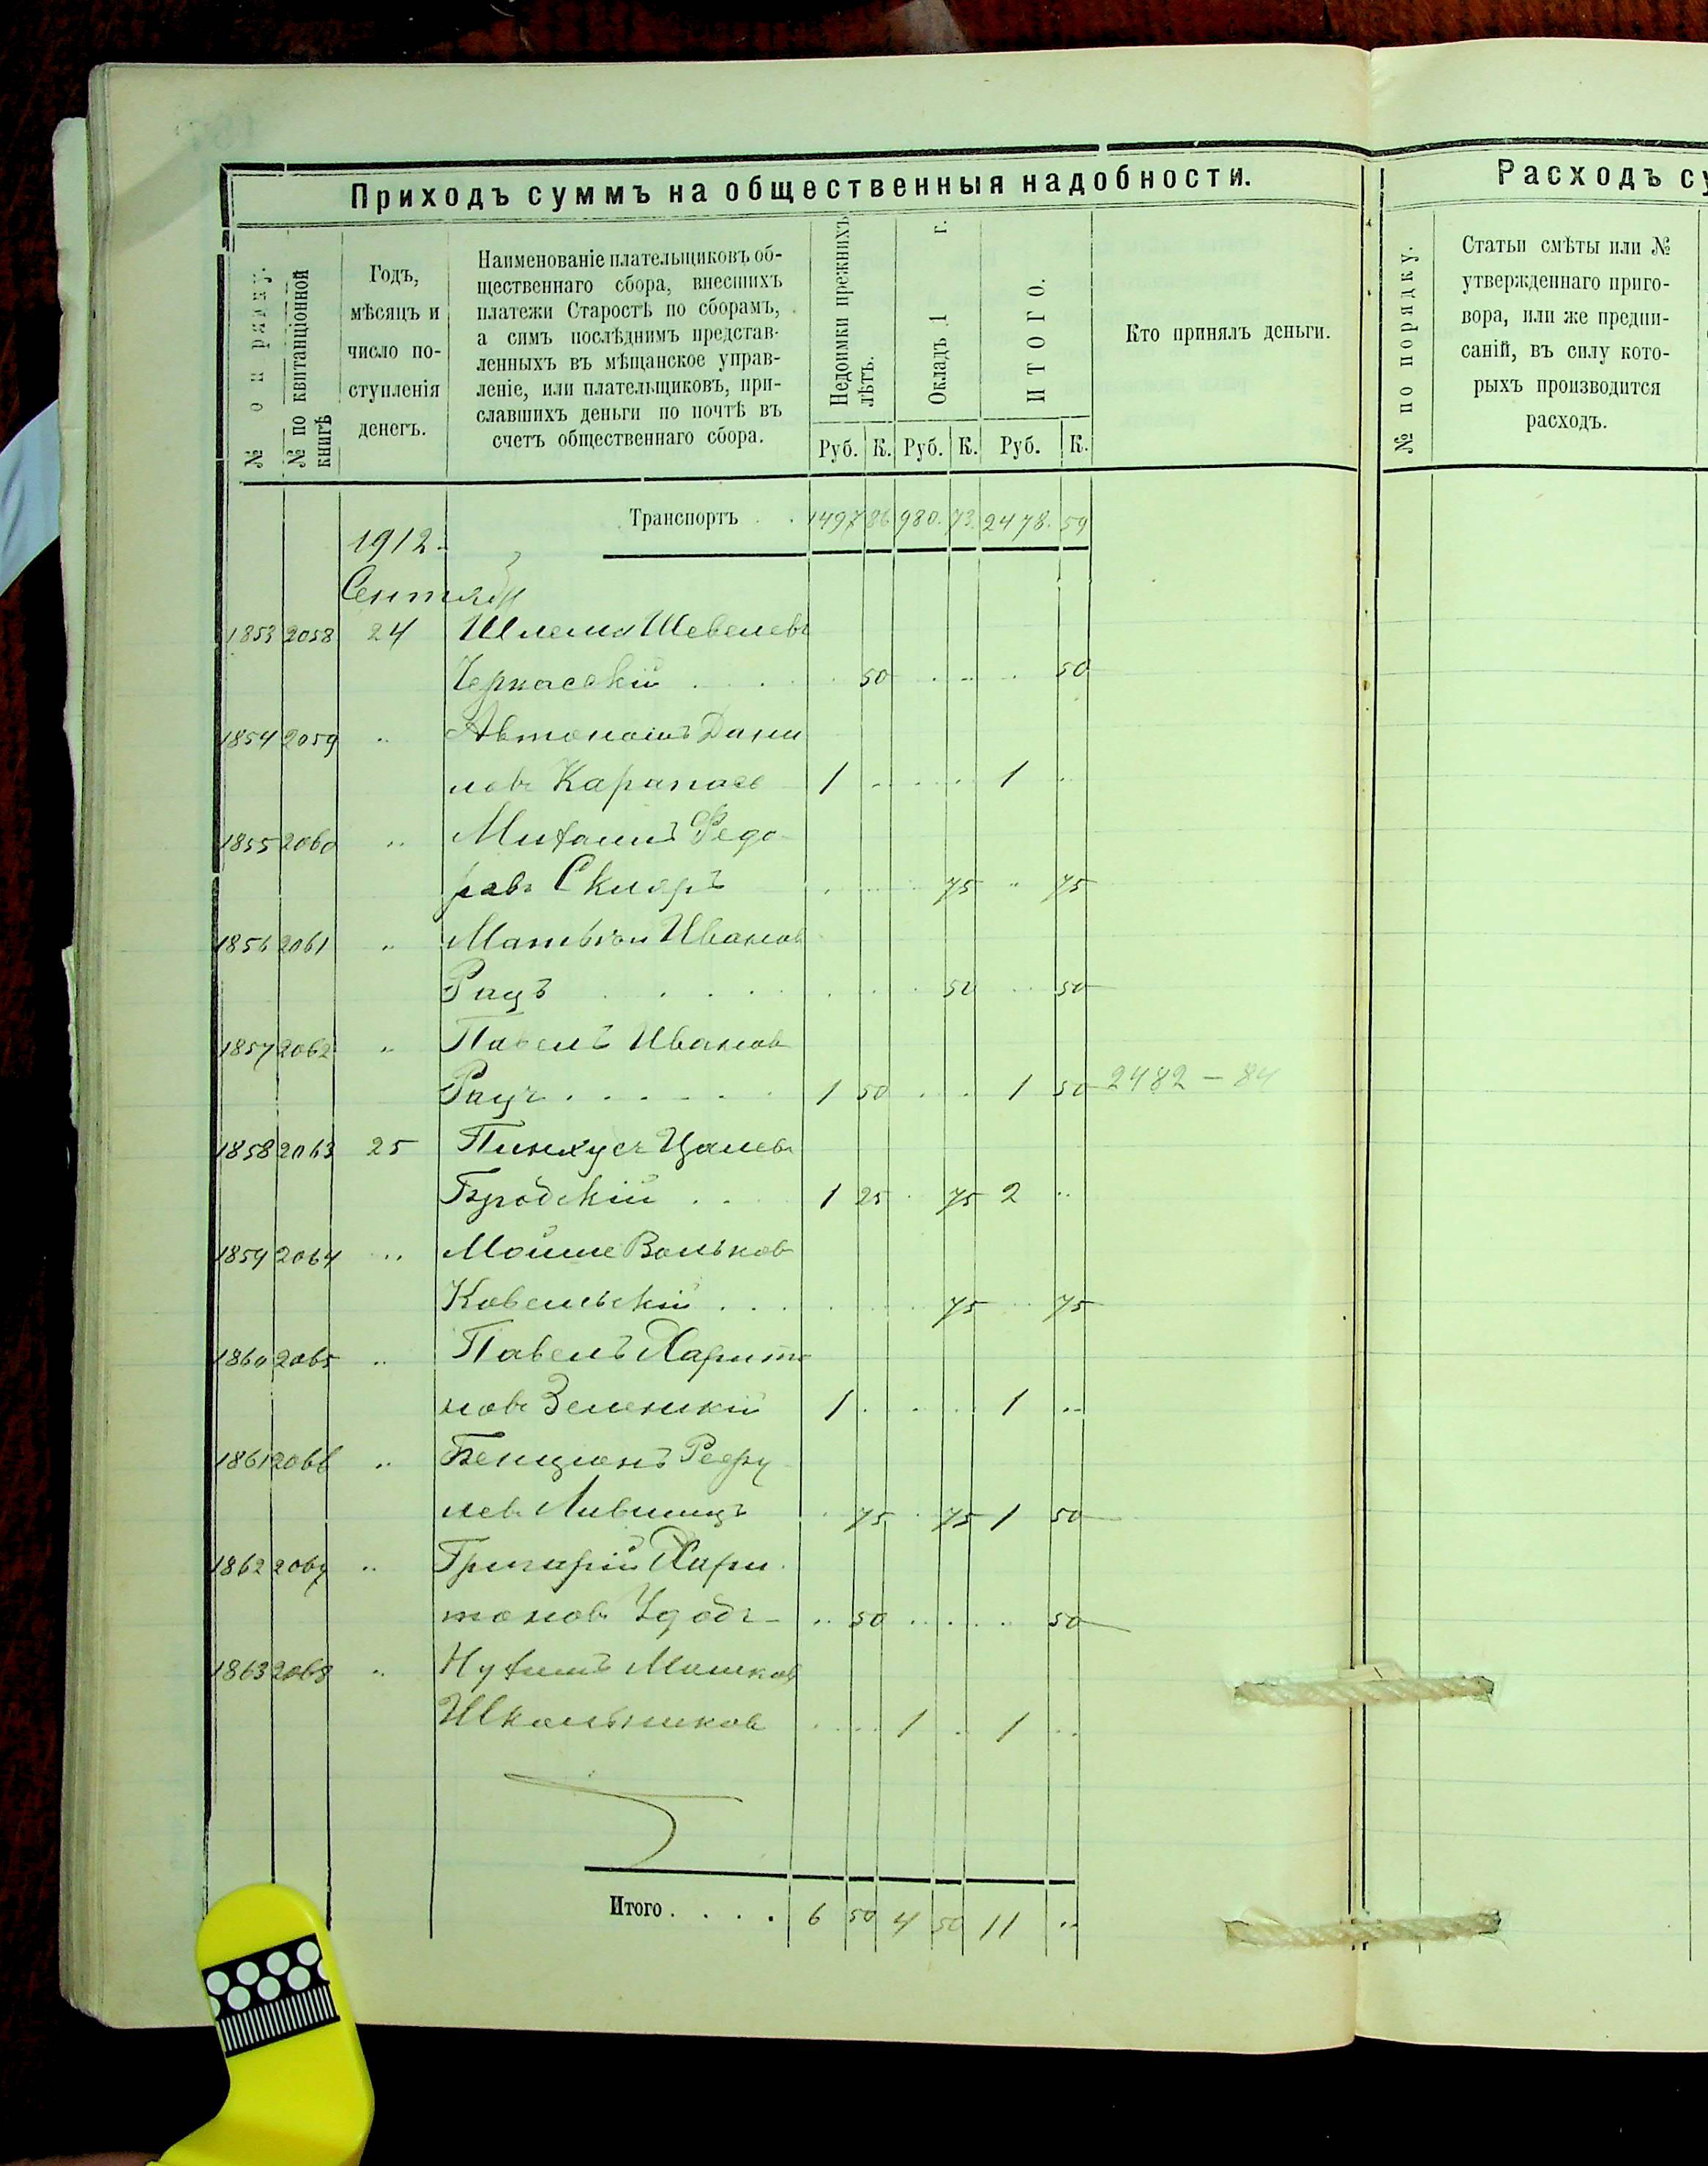 Приходъ суммъ на общественныя надобности.
№ по квитанціонной книгѣ
Годъ,
мѣсяцъ и
число по-
ступленія
денегъ.
Наименованіе плательщиковъ об-
щественнаго сбора, внесшихъ
платежи Старостѣ по сборамъ,
а симъ послѣднимъ представ-
ленныхъ въ мѣщанское управ-
леніе, или плательщиковъ, при-
славшихъ деньги по почтѣ въ
счетъ общественнаго сбора.
Недоимки прежнихъ
лѣтъ.
Окладъ 1 г.
ИТОГО.
Руб. К. Руб. К. Руб. К.
Кто принялъ деньги.
Транспортъ . . 1497 86 980. 73. 2478. 59
1912.
Сентябр
1853 2058 24 Шлема Шевелевъ
Черкасскій . . . . 50 . .. . 50
1854 2059 .. Автономъ Дани
ловъ Карапасъ 1 .. .. .. 1 ..
1855 2060 .. Митанъ Федо
ровъ Скляръ . .. .. 75 .. 75
1856 2061 .. Матвѣй Иванов
Рацъ . . . . . . . . 50 .. 50
1857 2062 .. Павелъ Иванов
Рацъ . . . . . . 1 50 . . 1 50 2482 - 84
1858 2063 25 Пинхусъ Цалевъ
Бродскій . . 1 25 . 75 2 ..
1859 2064 .. Мойше Вольков
Ковельскій . . . . . . 75 .. 75
1860 2065 .. Павелъ Харито
новъ Зеленскій 1 . . . 1 ..
1861 2066 .. Бенціонъ
лев. Лившицъ . 75 . 75 1 50
1862 2067 .. Григорій Хари
тонов. Удодъ - .. 50 .. .. . 50
1863 2068 .. Нутимъ Мошков
Школьников . . . 1 . 1 ..
Итого . . . . 6 50 4 50 11 ..
Расходъ су
№ по порядку.
Статьи смѣты или №
утвержденнаго приго-
вора, или же предпи-
саній, въ силу кото-
рыхъ производится
расходъ.